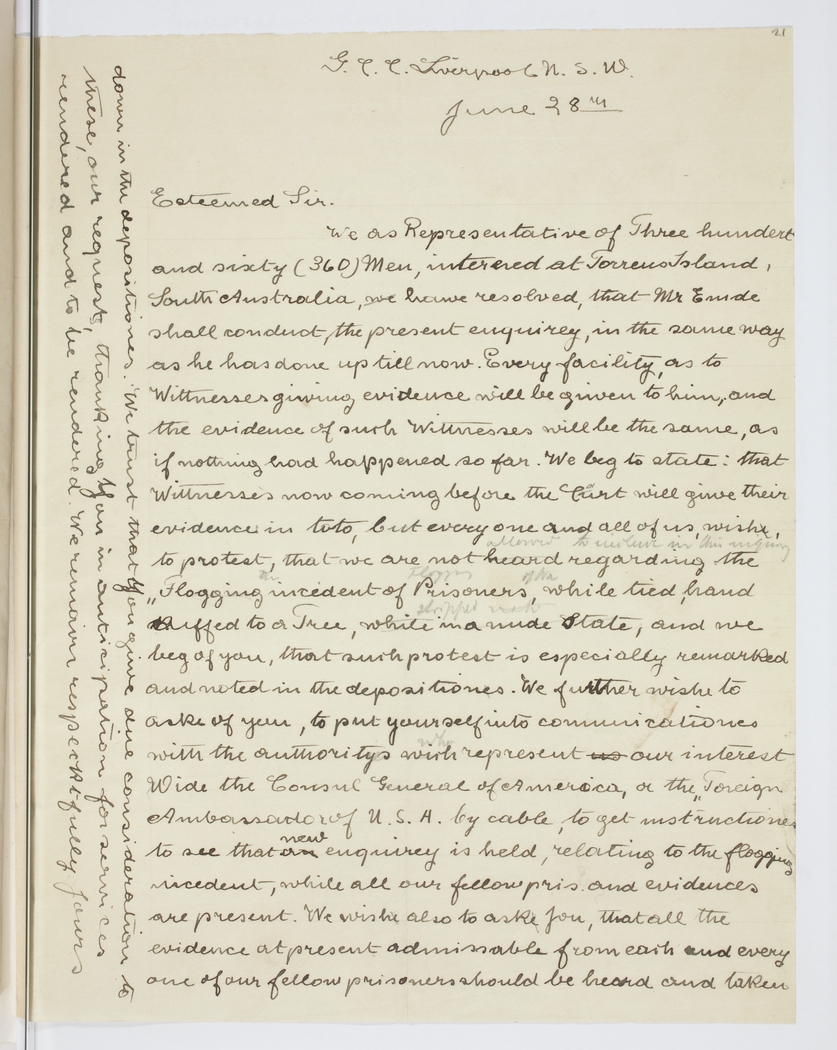 21
G. C. C. Liverpool N. S. W.
June 28th
Esteemed Sir.
We as Representative of Three hundert
and sixty (360) Men, interned at Torrens Island,
South Australia, we hawe resolved, that Mr Emde
shall conduct, the present enquirey, in the same way
as he has done up till now. Every facility, as to
Wittnesses giwing evidence will be giwen to him, and
the evidence of such Wittnesses will be the same, as
if nothing had happened so far. We beg to state: that
Wittnesses now coming before the Curt will giwe their
evidence in toto, but everyone and all of us, wishe,
allowed to inclose in this inquiry
to protest, that we are not heard regarding the
Flogging of the
„Flogging incedent of Prisoners, while tied, hand
stripped
cuffed to a Tree, while in a nude State, and we
beg of you, that such protest is especially remarked
and noted in the depositiones. We further wishe to
aske of you, to put yourself into communicationes
who
with the authoritys wich represent us our interest
Wide the Consul General of America, or the „Foreign
Ambassador of U. S. A. by cable, to get instructiones
new
to see that an enquirey is held, relating to the flogging
incedent, while all our fellow pris. and evidences
are present. We wishe also to aske you, that all the
evidence at present admissable from each and every
one of our fellow prisoners should be heard and taken
down in the depositiones. We trust that you giwe due consideration to
these, our requests, thanking You in anticipation for services
rendered and to be rendered. We remain respecktfully Yours